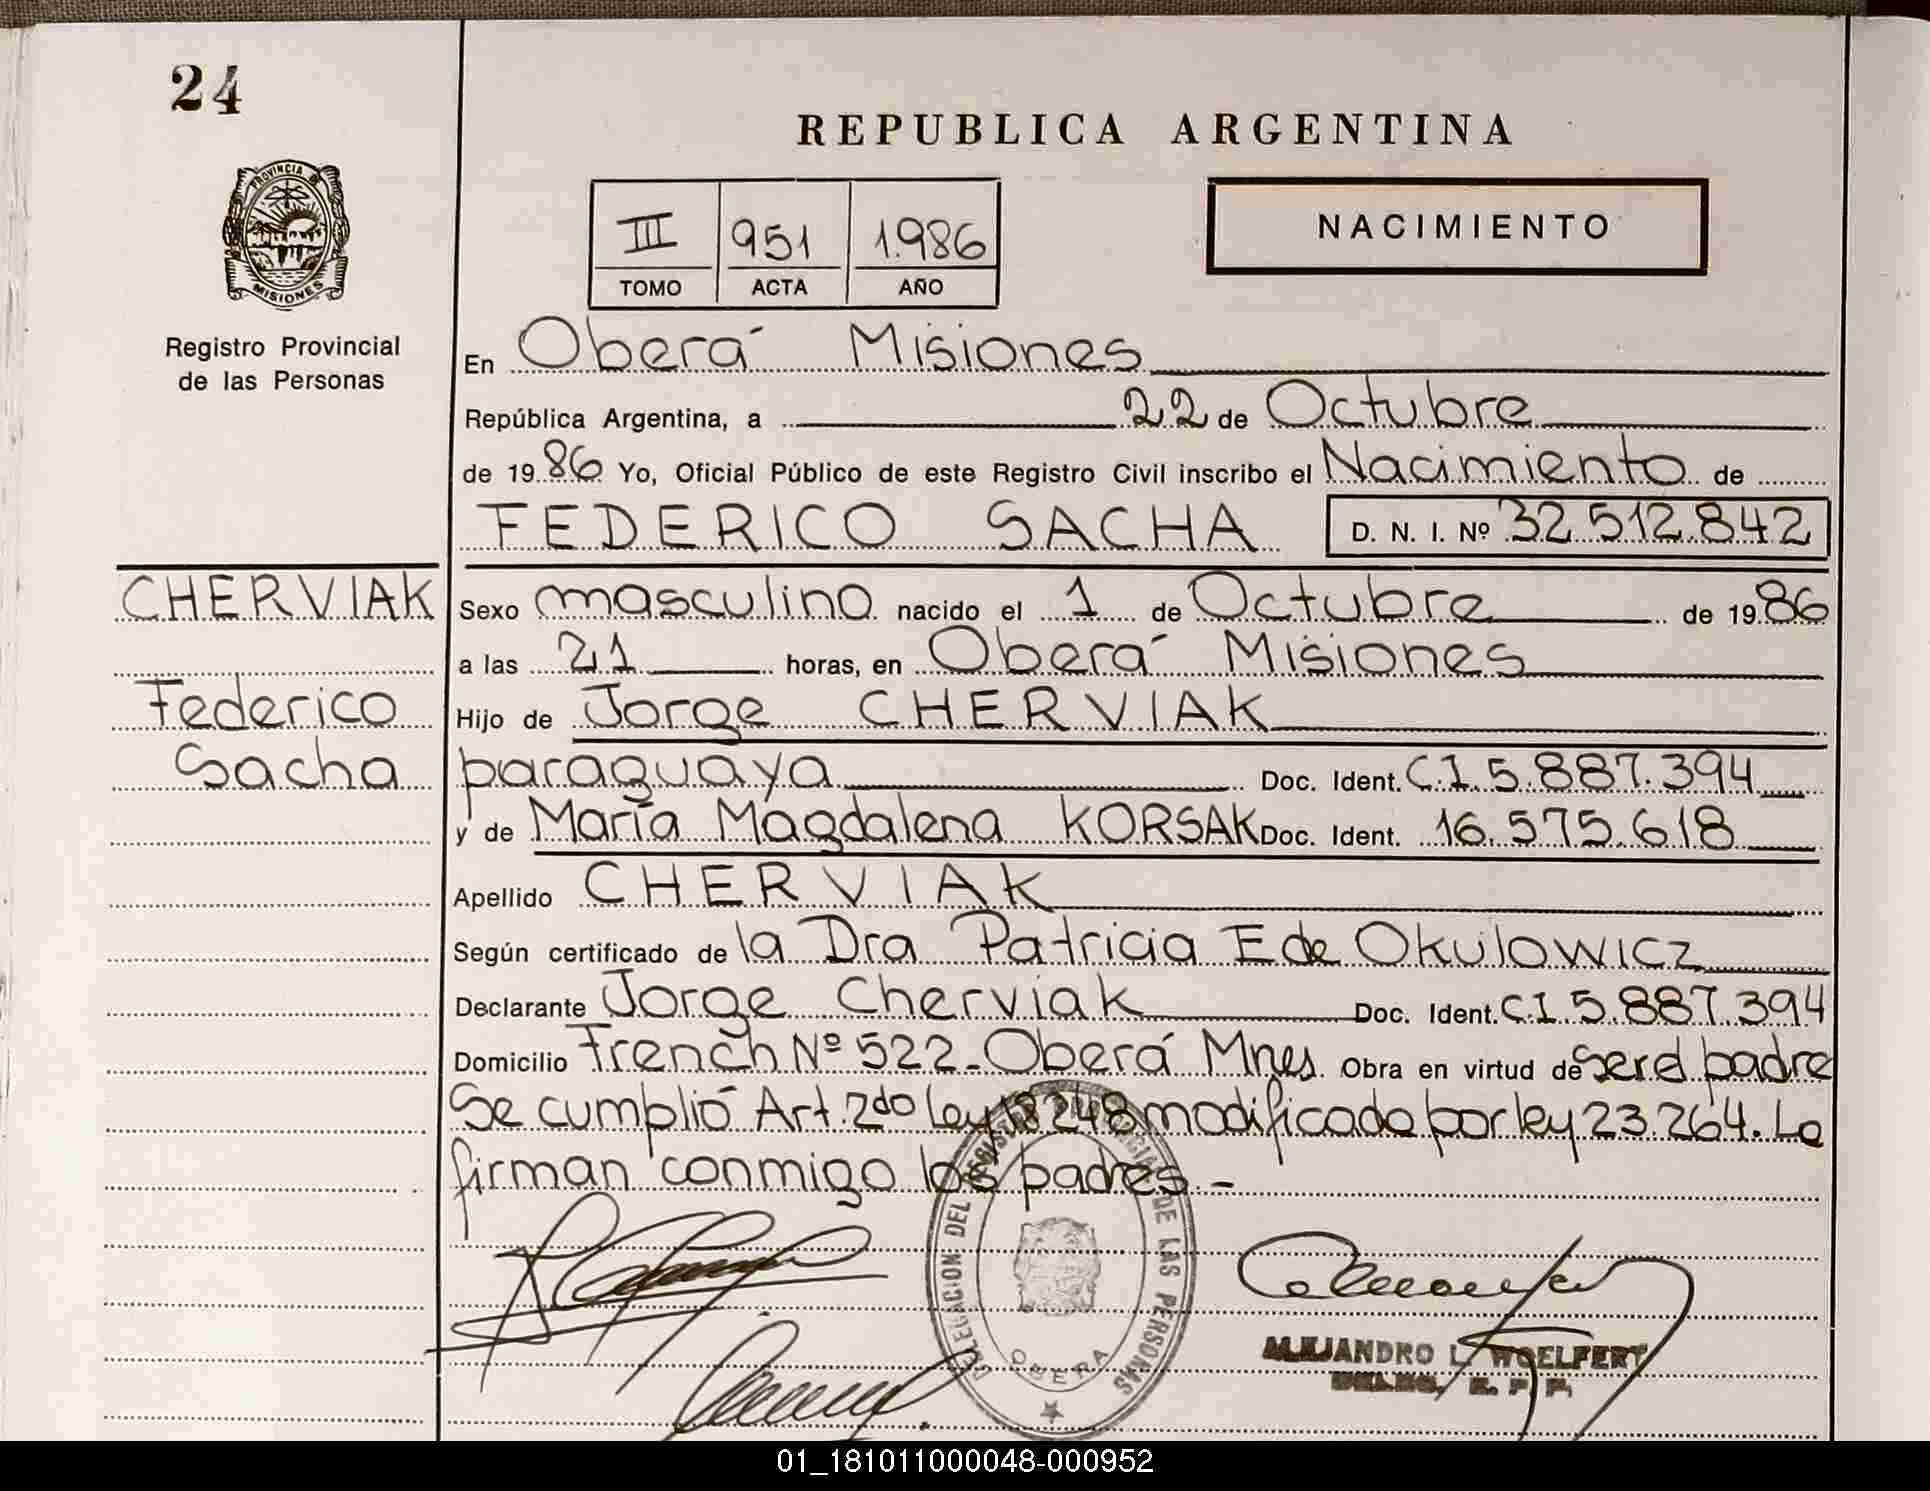 24
REPUBLICA ARGENTINA
PROVINCIA DE
MISIONES
III 951 1.986
TOMO ACTA AÑO
NACIMIENTO
Registro Provincial
de las Personas
En Oberá Misiones
República Argentina, a 22 de Octubre
de 19 86 Yo, Oficial Público de este Registro Civil inscribo el Nacimiento de
FEDERICO SACHA D. N. I. Nº 32.512.842
CHERVIAK
Federico
Sacha
Sexo masculino nacido el 1 de Octubre de 19 86
a las 21 horas, en Oberá Misiones
Hijo de Jorge CHERVIAK
paraguaya Doc. Ident. C.I. 5.887.394
y de María Magdalena KORSAK Doc. Ident. 16.575.618
Apellido CHERVIAK
Según certificado de la Dra Patricia E de Okulowicz
Declarante Jorge Cherviak Doc. Ident. C.I. 5.887.394
Domicilio French Nº 522 - Oberá Mnes. Obra en virtud de ser el padre
Se cumplió Art. 2do Ley 18248 modificada por ley 23.264. Lo
firman conmigo los padres. -
DELEGACION DEL REGISTRO PROVINCIAL DE LAS PERSONAS
OBERA
ALEJANDRO L. WOELFERT
01_181011000048-000952